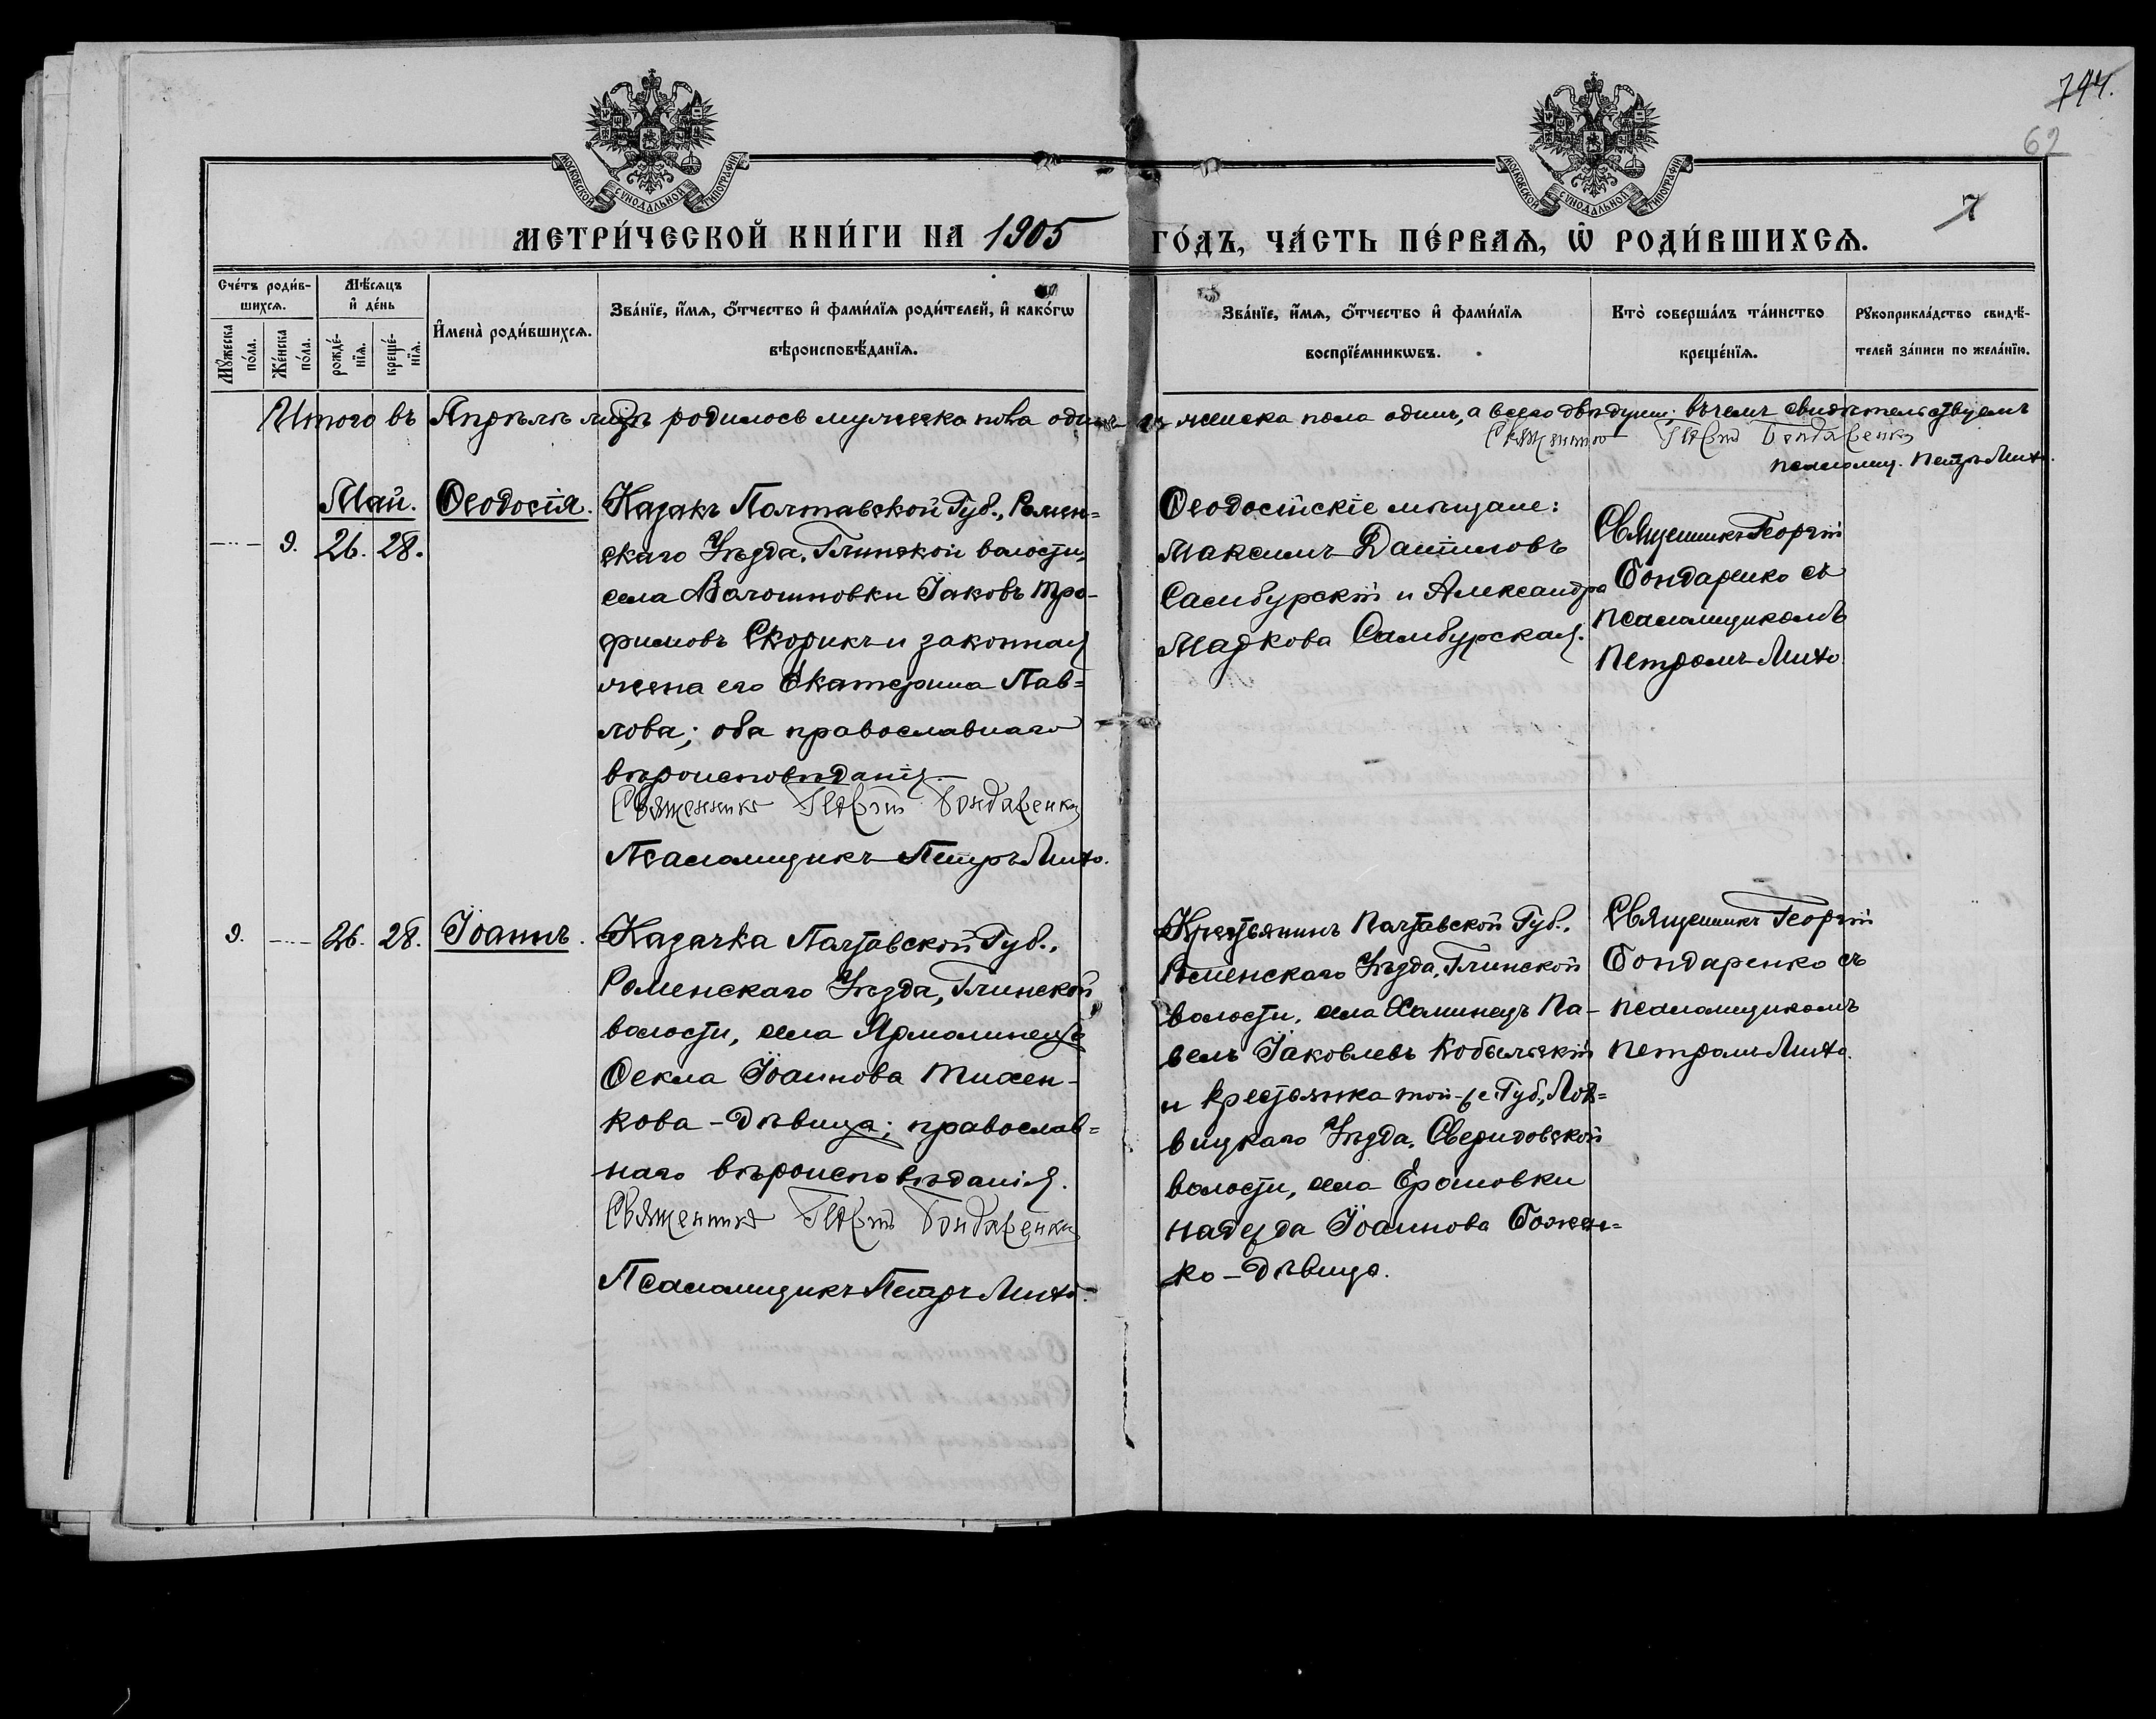 744.
62
7
МОСКОВСКОЙ СѴНОДАЛЬНОЙ ТИПОГРАФІИ
МОСКОВСКОЙ СѴНОДАЛЬНОЙ ТИПОГРАФІИ
МЕТРИ́ЧЕСКОЙ КНИ́ГИ НА 1905 ГО́ДЪ, ЧА́СТЬ ПЕ́РВАѦ, Ѡ҆ РОДИ́ВШИХСѦ.
Сче́тъ роди́в-
шихсѧ.
Мꙋ́жеска
по́ла.
Же́нска
по́ла.
Мѣ́сѧцъ
и҆ де́нь
рожде́-
нїѧ.
креще́-
нїѧ.
И҆мена̀ роди́вшихсѧ.
Зва́нїе, и҆́мѧ, ѻ҆́тчество и҆ фами́лїѧ роди́телей, и҆ како́гѡ
вѣроисповѣ́данїѧ.
Зва́нїе, и҆́мѧ, ѻ҆́тчество и҆ фами́лїѧ
воспрїе́мникѡвъ.
Кто̀ соверша́лъ та́инство
креще́нїѧ.
Рꙋкоприкла́дство свидѣ́-
телей за́писи по жела́нїю.
Итого въ Апрѣлѣ мцѣ родилось мужеска пола одинъ женска пола одинъ, а всего двѣ души; въ чемъ свидѣтельствуемъ
Священникъ Георгій Бондаренко
псаломщ. Петръ Михо.
Май.
9. 26. 28.
Ѳеодосія.
Казакъ Полтавской Губ., Ромен=
скаго Уѣзда, Глинской волости,
села Волошновки Іаковъ Тро-
фимовъ Скорикъ и законная
жена его Екатерина Пав=
лова; оба православнаго
вѣроисповѣданія.
Священникъ Георгій Бондаренко
Псаломщикъ Петръ Михо.
Ѳеодосійскіе мѣщане:
Максимъ Даниловъ
Самбурскій и Александра
Маркова Самбурская.
Священникъ Георгій
Бондаренко съ
псаломщикомъ
Петромъ Михо.
9. 26. 28.
Іоаннъ.
Казачка Полтавской Губ.,
Роменскаго Уѣзда, Глинской
волости, села Ярмолинецъ
Ѳекла Іоаннова Тихен-
кова - Дѣвица; православ=
наго вѣроисповѣданія.
Священникъ Георгій Бондаренко
Псаломщикъ Петръ Михо.
Крестьянинъ Полтавской Губ.,
Роменскаго Уѣзда, Глинской
волости, села Хоминецъ Па-
велъ Іаковлевъ Кобыльскій
и крестьянка той-же Губ., Лох=
вицкаго Уѣзда, Свиридовской
волости, села
Надежда Іоаннова Божен=
ко - Дѣвица.
Священникъ Георгій
Бондаренко съ
псаломщикомъ
Петромъ Михо.